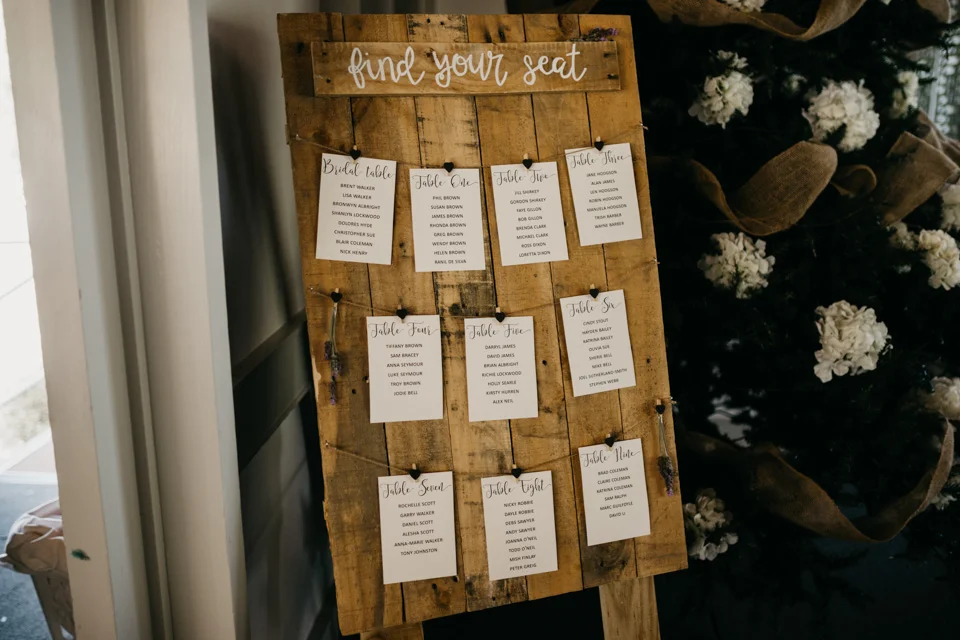 find your seat
Bridal table
BRENT WALKER
LISA WALKER
BRONWYN ALBRIGHT
SHANLYN LOCKWOOD
DOLORES HYDE
CHRISTOPHER SUE
BLAIR COLEMAN
NICK HENRY
Table One
PHIL BROWN
SUSAN BROWN
JAMES BROWN
RHONDA BROWN
GREG BROWN
WENDY BROWN
HELEN BROWN
RANIL DE SILVA
Table Five
JILL SHIRKEY
GORDON SHIRKEY
FAYE GILLON
BOB GILLON
BRENDA CLARK
MICHAEL CLARK
ROSS DIXON
LORETTA DIXON
Table Three
JANE HODGSON
ALAN JAMES
LEN HODGSON
ROBIN HODGSON
MANUELA HODGSON
TRISH BARBER
WAYNE BARBER
Table Four
TIFFANY BROWN
SAM BRACEY
ANNA SEYMOUR
LUKE SEYMOUR
TROY BROWN
JODIE BELL
Table Five
DARRYL JAMES
DAVID JAMES
BRIAN ALBRIGHT
RICHIE LOCKWOOD
HOLLY SEARLE
KIRSTY HURREN
ALEX NEIL
Table Six
CINDY STOUT
HAYDEN BAILEY
KATRINA BAILEY
OLIVIA SUE
SHERIE BELL
MIKE BELL
JOEL SUTHERLAND-SMITH
STEPHEN WEBB
Table Seven
ROCHELLE SCOTT
GARRY WALKER
DANIEL SCOTT
ALESHA SCOTT
ANNA-MARIE WALKER
TONY JOHNSTON
Table Eight
NICKY ROBBIE
DAYLE ROBBIE
DEBS SAWYER
ANDY SAWYER
JOANNA O'NEIL
TODD O'NEIL
MISH FINLAY
PETER GREIG
Table Nine
BRAD COLEMAN
CLAIRE COLEMAN
KATRINA COLEMAN
SAM RALPH
MARC GUILFOYLE
DAVID LI